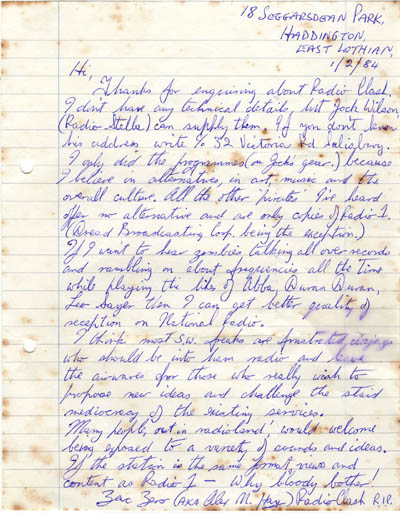 18 SEGGARSDEAN PARK,
HADDINGTON,
EAST LOTHIAN,
1/2/84
Hi,
Thanks for enquiring about Radio Clash,
I don't have any technical details, but Jock Wilson,
(Radio Stella) can supply them. If you don't know
his address write % 32 Victoria Rd
I only did the programmes (on Jocks gear.) because
I believe in alternatives, in art, music and the
overall culture. All the other 'pirates' I've heard
offer no alternative and are only copies of Radio 1.
(Dread Broadcasting Corp. being the exception.)
If I want to hear zombies talking all over records
and rambling on about frequencies all the time
while playing the likes of Abba, Duran Duran,
Leo Sayer then I can get better quality of
reception on National Radio.
I think most S.W. freaks are frustrated deejays
who should be into ham radio and leave
the airwaves for those who really wish to
propose new ideas and challenge the staid
mediocracy of the existing services.
Many people, out in 'radioland' would welcome
being exposed to a variety of sounds and ideas.
If the station is the same format, views and
content as Radio 1 — Why bloody bother!
Zero (AKA Alex M. ) Radio Clash R.I.P.